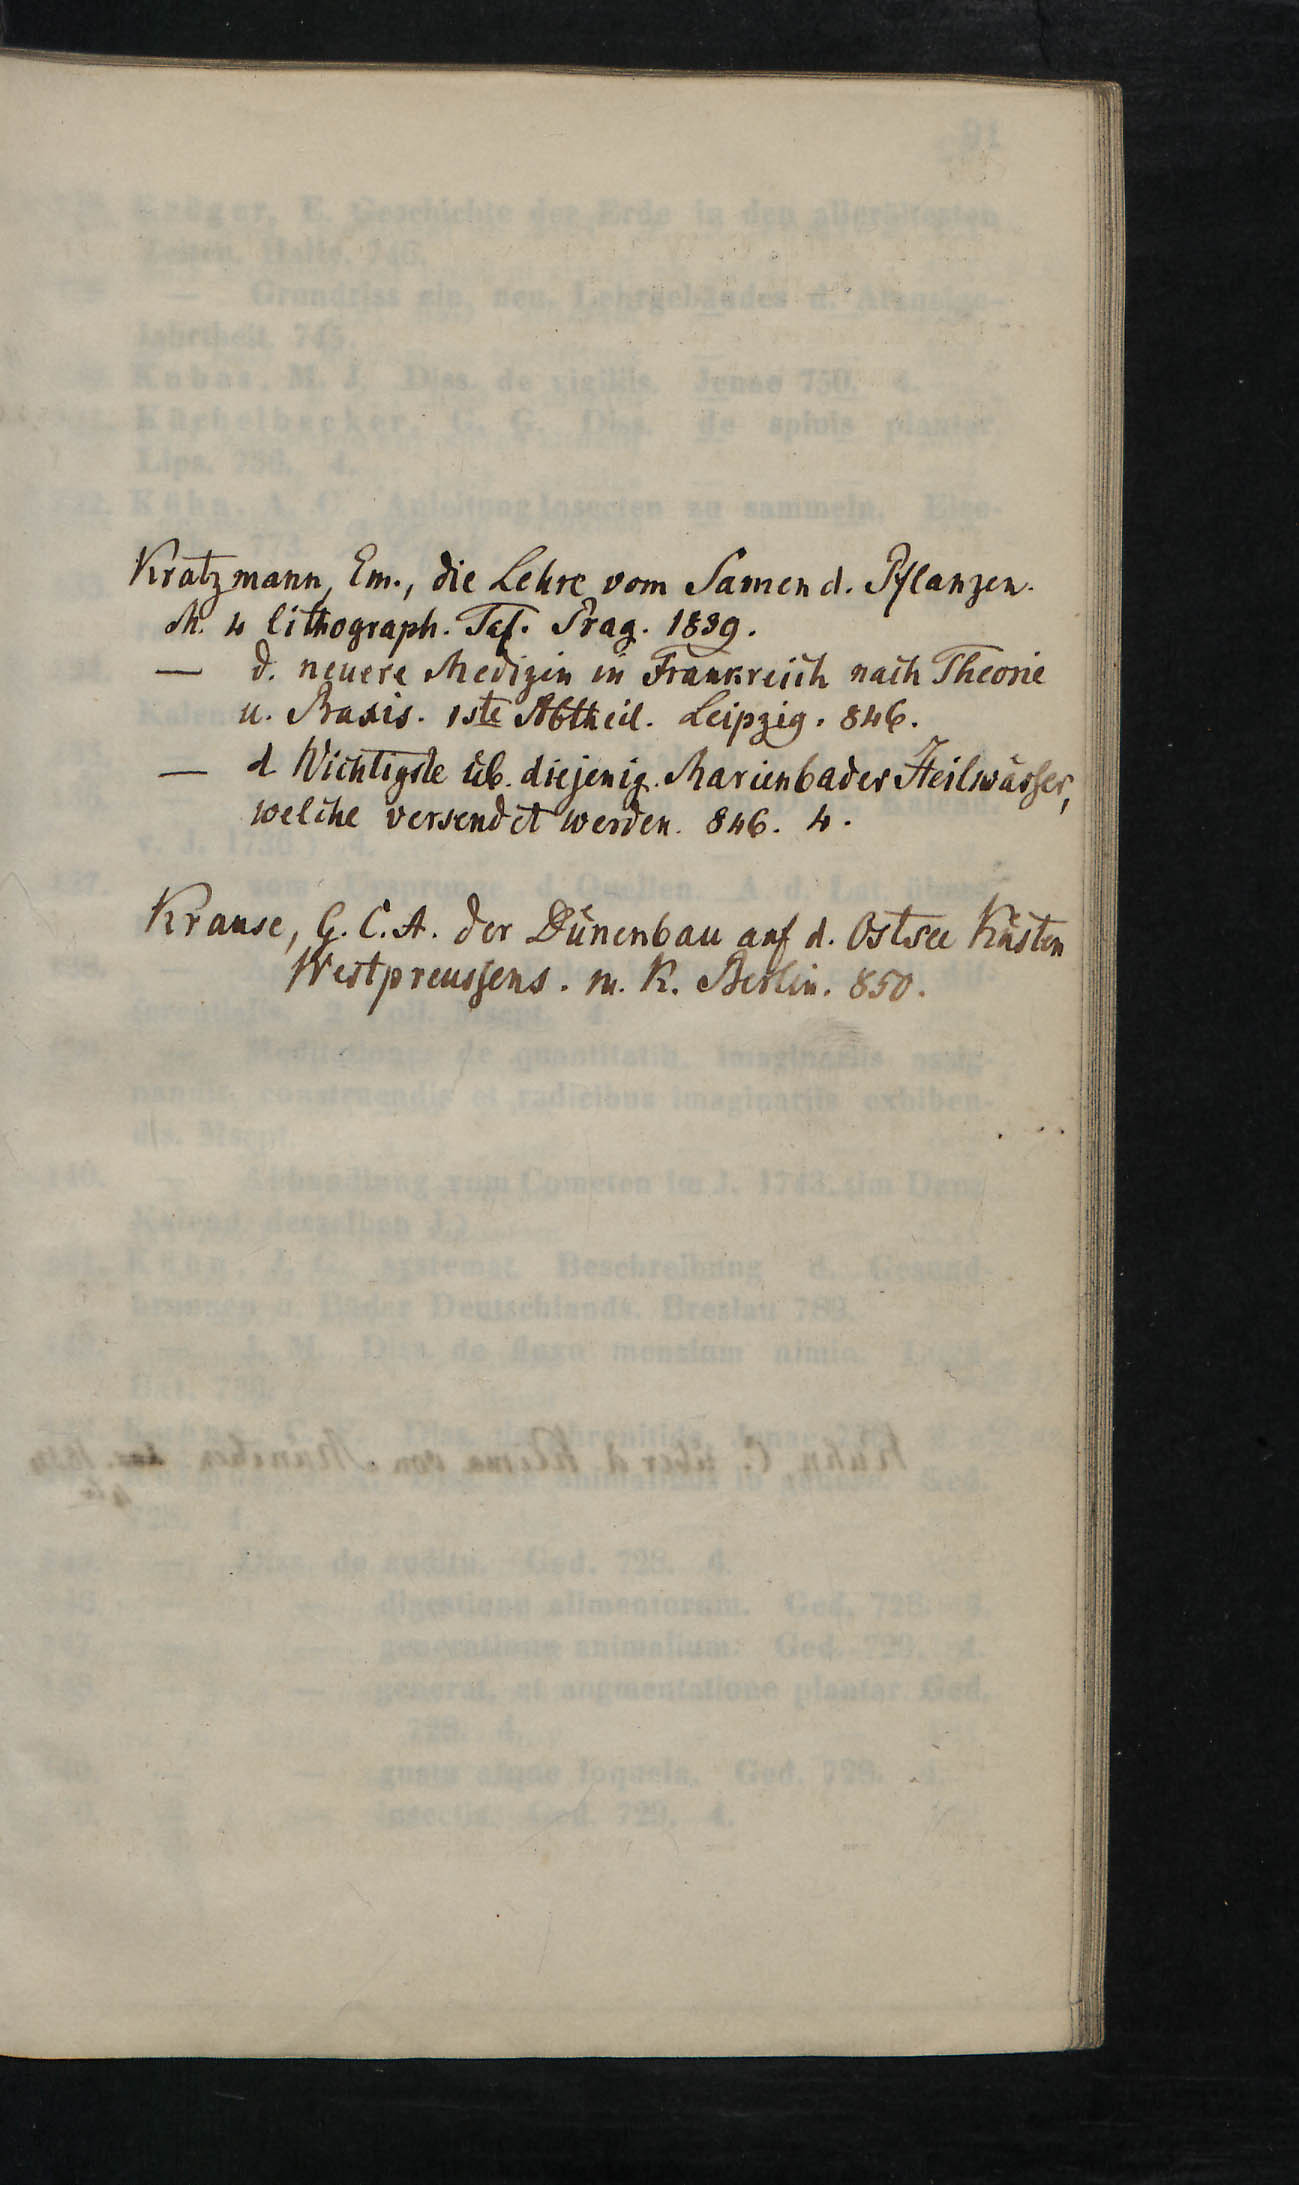 Kratzmann, Em., die Lehre vom Samen d. Pflanzen.
M. 4 lithograph. Taf. Prag. 1839.
— d. neuere Medizin in Frankreich nach Theorie
u. Praxis. 1ste Abtheil. Leipzig. 846.
— d Wichtigste üb. diejenig. Marienbader Heilwässer,
welche versendet werden. 846. 4.
Krause, G. C. A. der Dünenbau auf d. Ostsee Küsten
Westpreussens. m. K. Berlin. 850.